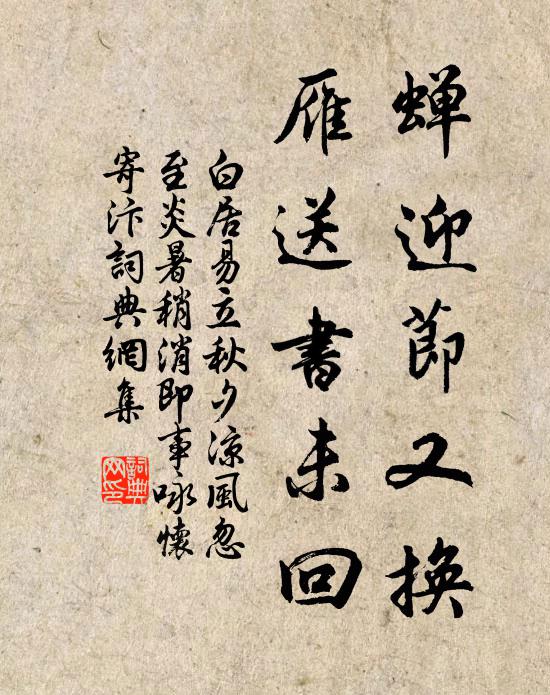 蟬迎節又換
雁送書未回
白居易立秋夕涼風忽
至炎暑稍消即事咏懷
寄汴詞典網集
詞典
网印